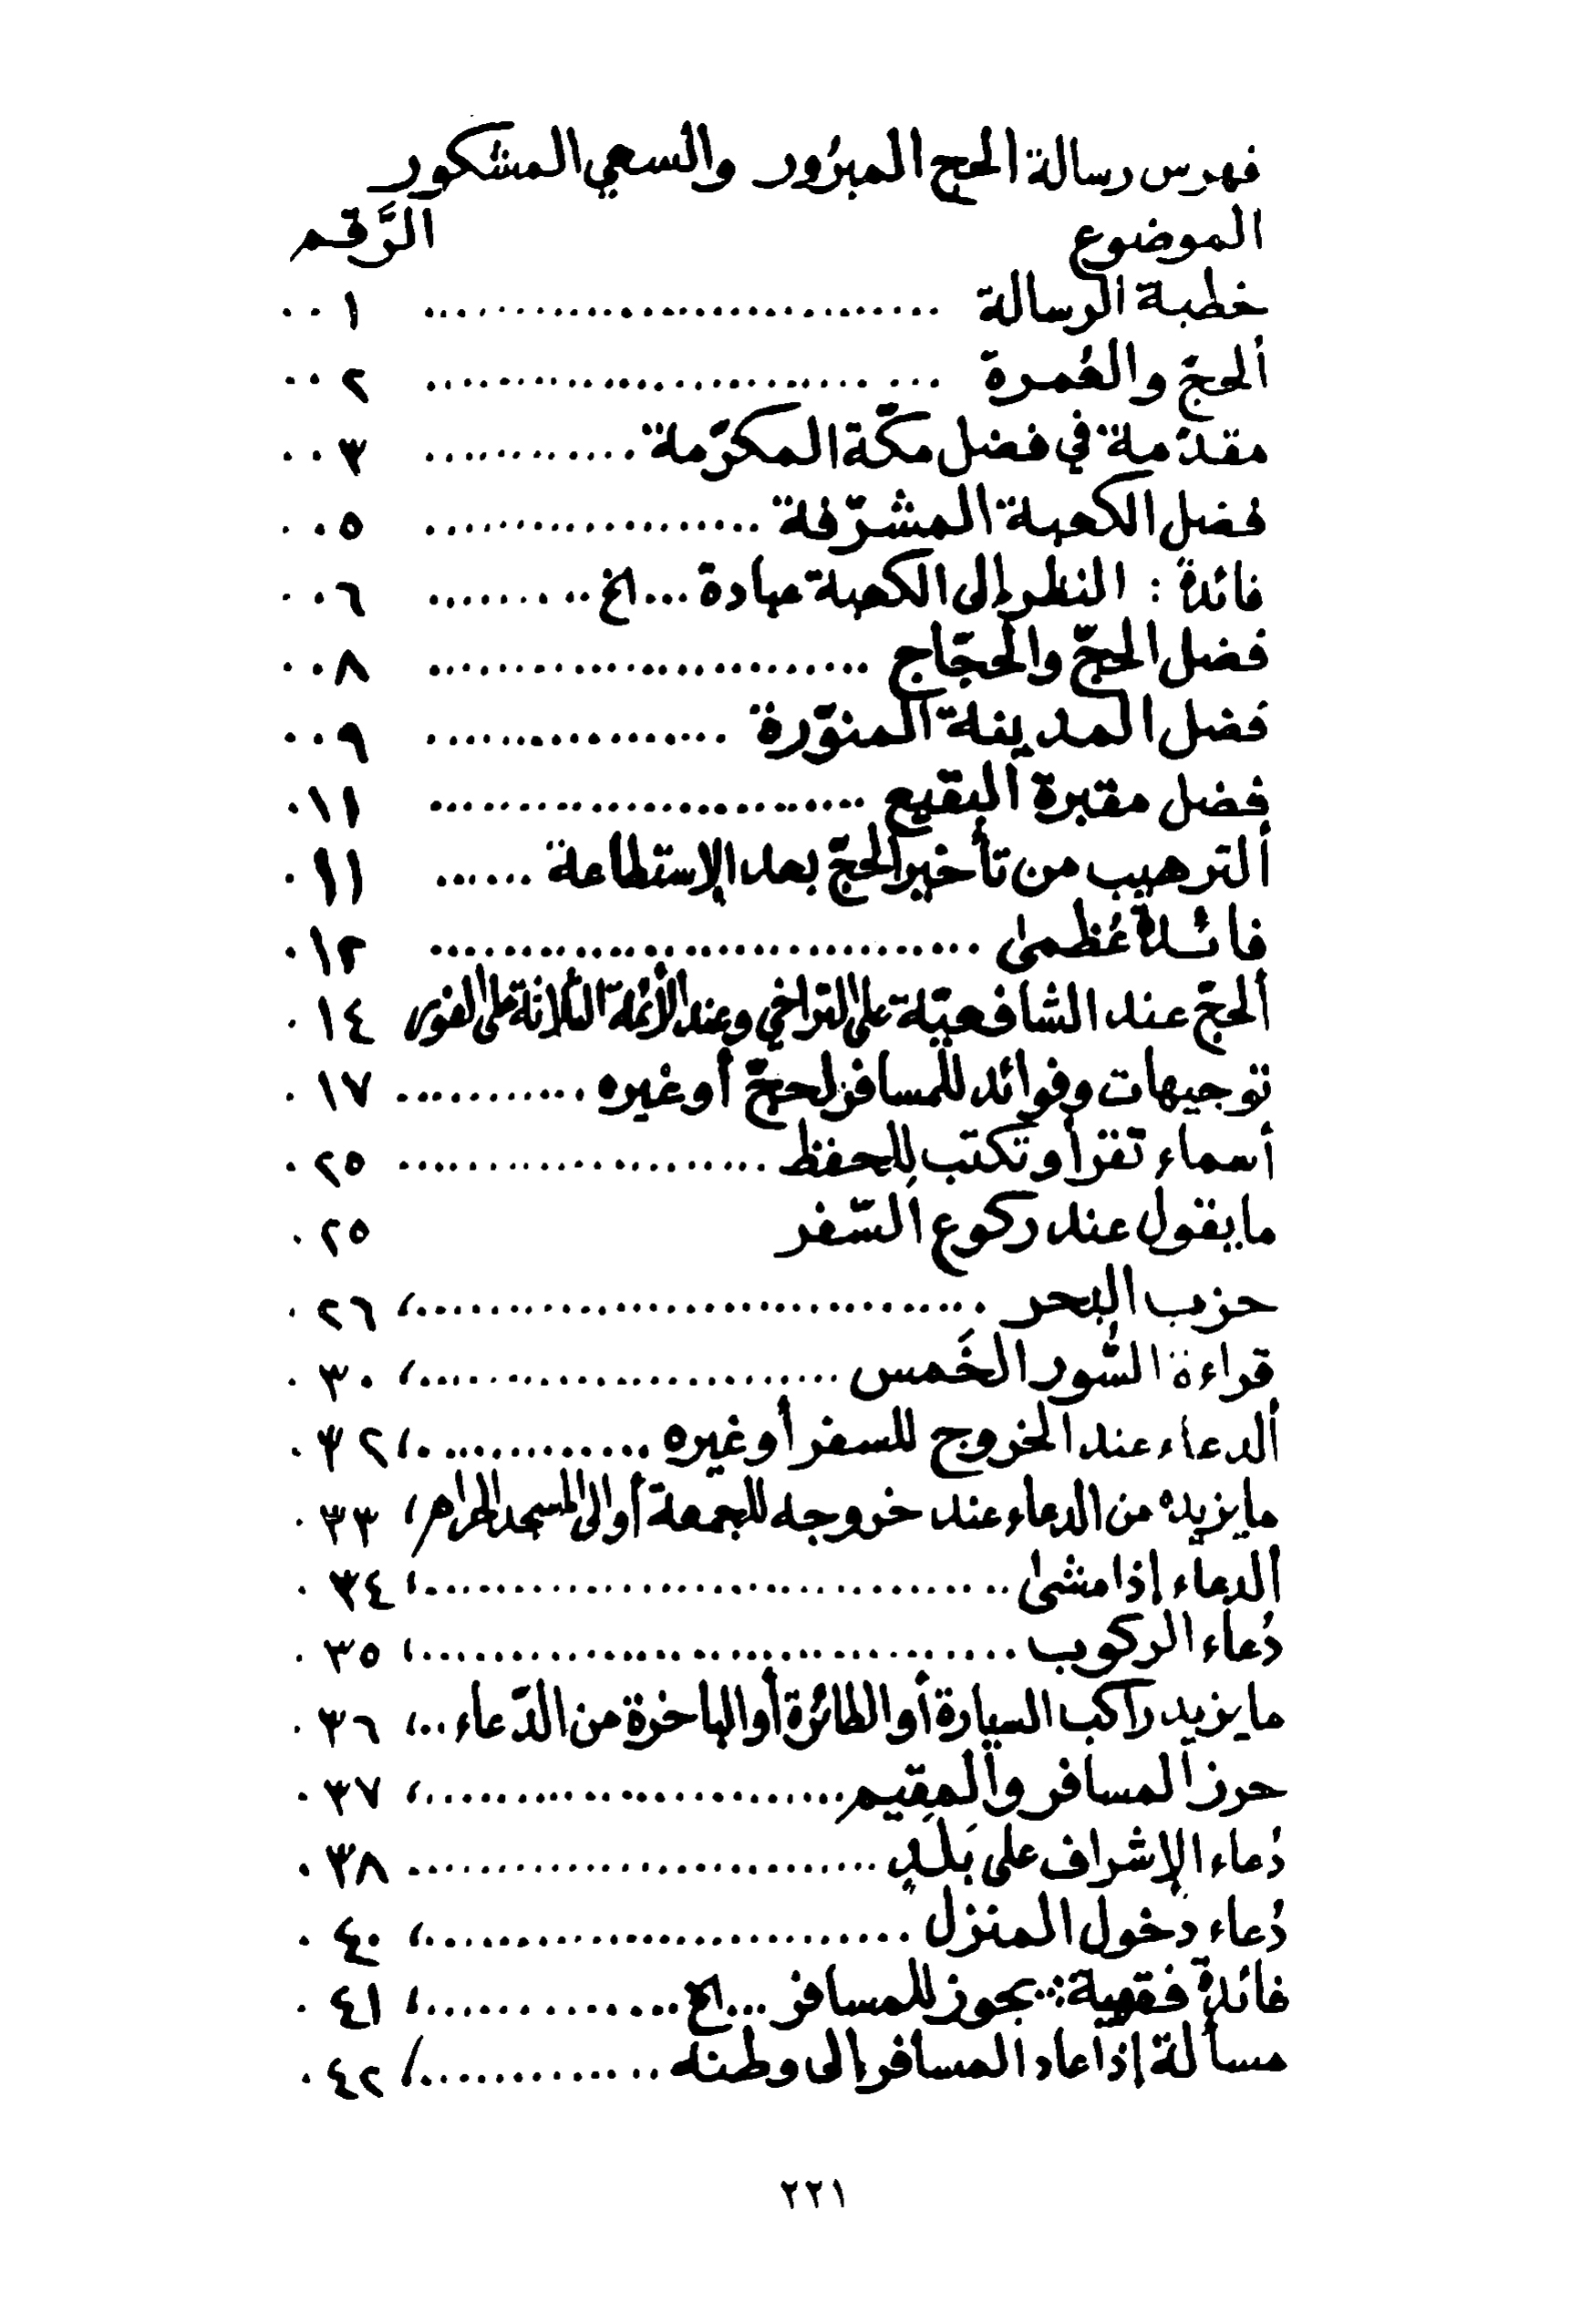 فهرس رسالة الحج المبرُور والسعي المشكور
الموضوع الرَّقم
خطبة الرسالة .............................. ٠٠١
ألحجّ والعُمرة .............................. ٠٠٢
مقدّمة في فضل مكّة المكرّمة ............ ٠٠٣
فضل الكعبة المشرّفة ................... ٠٠٥
فائدة : النظر إلى الكعبة عبادة ...الخ ......... ٠٠٦
فضل الحجّ والحجّاج ......................... ٠٠٨
فضل المدينة المنوّرة ................. ٠٠٩
فضل مقبرة البقيع ......................... ٠١١
ألترهيب من تأخير الحجّ بعد الإستطاعة ...... ٠١١
فائدة عُظمىٰ ............................... ٠١٢
ألحجّ عند الشافعيّة على التراخي وعند الأئمة الثلاثة على الفور ٠١٤
توجيهات وفوائد للمسافر لحجّ أو غيره ........... ٠١٧
أسماء تقرأ وتكتب للحفظ ..................... ٠٢٥
ما يقول عند ركوع السّفر ٠٢٥
حزب البحر ................................ ٠٢٦
قراءة السُّور الخَمس ........................ ٠٣٠
ألدعاء عند الخروج للسفر أو غيره ............. ٠٣٢
ما يزيده من الدعاء عند خروجه للجمعة أو الى المسجد الحرام ٠٣٣
الدعاء إذا مشىٰ ................................. ٠٣٤
دُعاء الركوب .................................. ٠٣٥
ما يزيد راكب السيارة أو الطائرة أو الباخرة من الدّعاء ... ٠٣٦
حرز المسافر والمقيم ........................ ٠٣٧
دُعاء الإشراف على بَلَدٍ .......................... ٠٣٨
دُعاء دخول المنزل ........................... ٠٤٠
فائدة فقهية : يجوز للمسافر ...الخ .............. ٠٤١
مسألة إذا عاد المسافر إلى وطنه .............. ٠٤٢
٢٢١